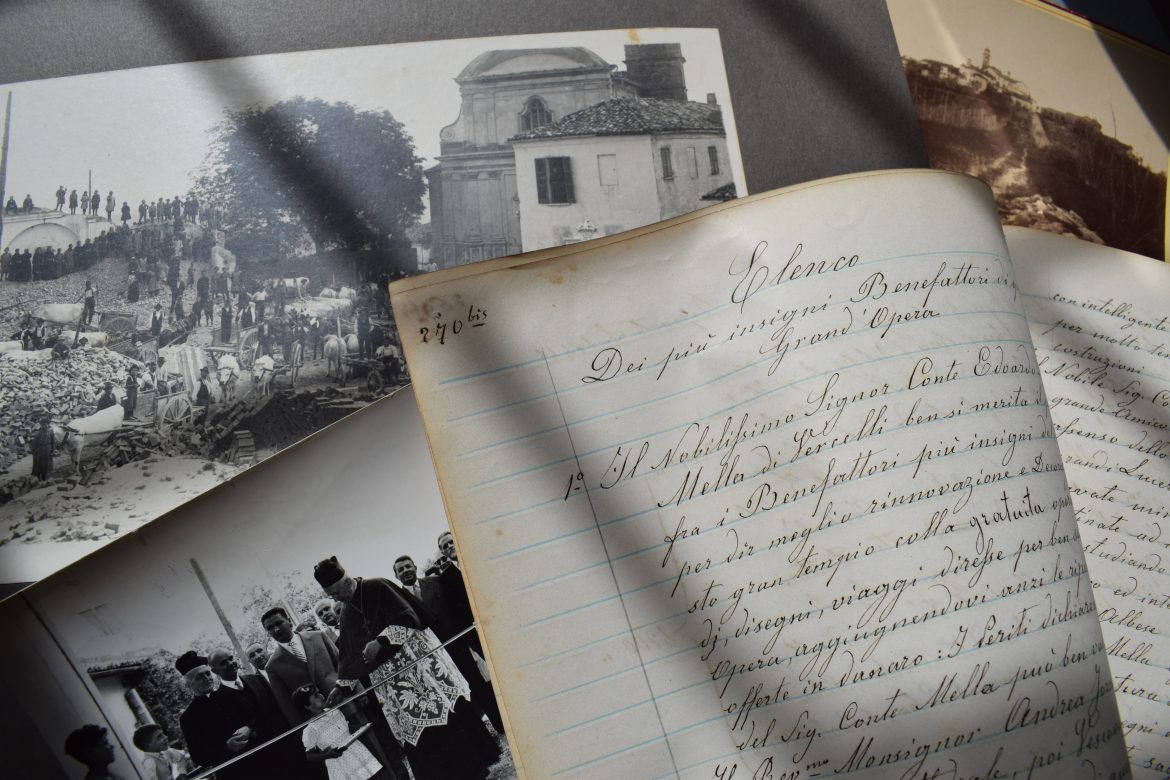 270 bis
Elenco
Dei più insigni Benefattori di
Grand'Opera
1º Il Nobilissimo Signor Conte Edoardo
Mella di Vercelli ben si merita
fra i Benefattori più insigni
per dir meglio rinnovazione e Decora
sto gran tempio colla gratuita ope
di, disegni, viaggi diresse per ben
Opera, aggiugnendovi anzi le
offerte in danaro: I Periti dichiara
del Sig. Conte Mella può ben
Il Rev.mo Monsignor Andrea
poi Vescov
con intelligente
per molto
costruzioni
Nobile Sig. Co
grande Amico
assenso dello
grandi
ivate
tinate ad
studiando
ed int
Albese
Mella
tura